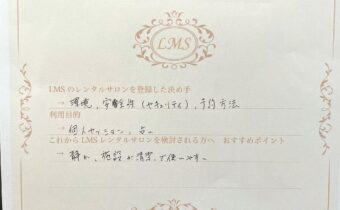 LMS
LMSのレンタルサロンを登録した決め手
→ 環境、安全性(セキュリティ)、予約方法
利用目的
→ 個人セッション、占い
これからLMSレンタルサロンを検討される方へ おすすめポイント
→ 静か、施設が清潔で使いやすい